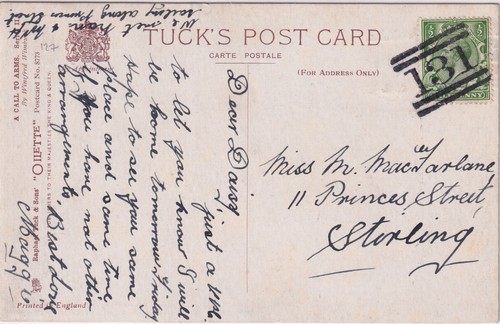 TUCK'S POST CARD
CARTE POSTALE
(FOR ADDRESS ONLY)
131
Miss M. MacFarlane,
11 Princes Street,
Stirling
Dear Daisy,
Just a line
to let you know I will
be home tomorrow Friday
Hope to see you same
place and same time
if you have not other
arrangements. Best Love
Maggie
We met
sailing along
Princes Street
127
A CALL TO ARMS.
By Winifred
Raphael Tuck & Sons' "OILETTE" Postcard No. 8773
TO THEIR MAJESTIES THE KING & QUEEN.
Printed in England